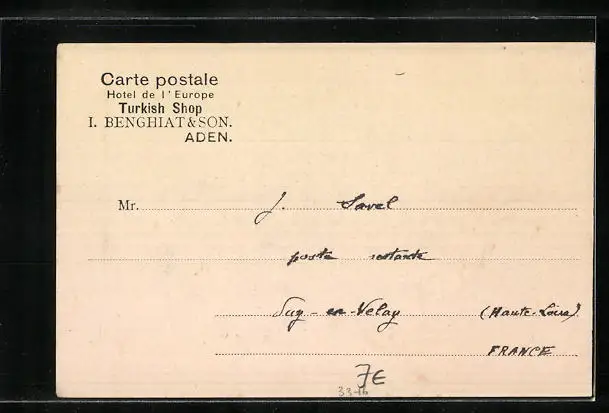 Carte postale
Hotel de l'Europe
Turkish Shop
I. BENGHIAT & SON.
ADEN.
Mr. J. Savel
poste restante
Puy-en-Velay (Haute-Loire)
FRANCE
7€